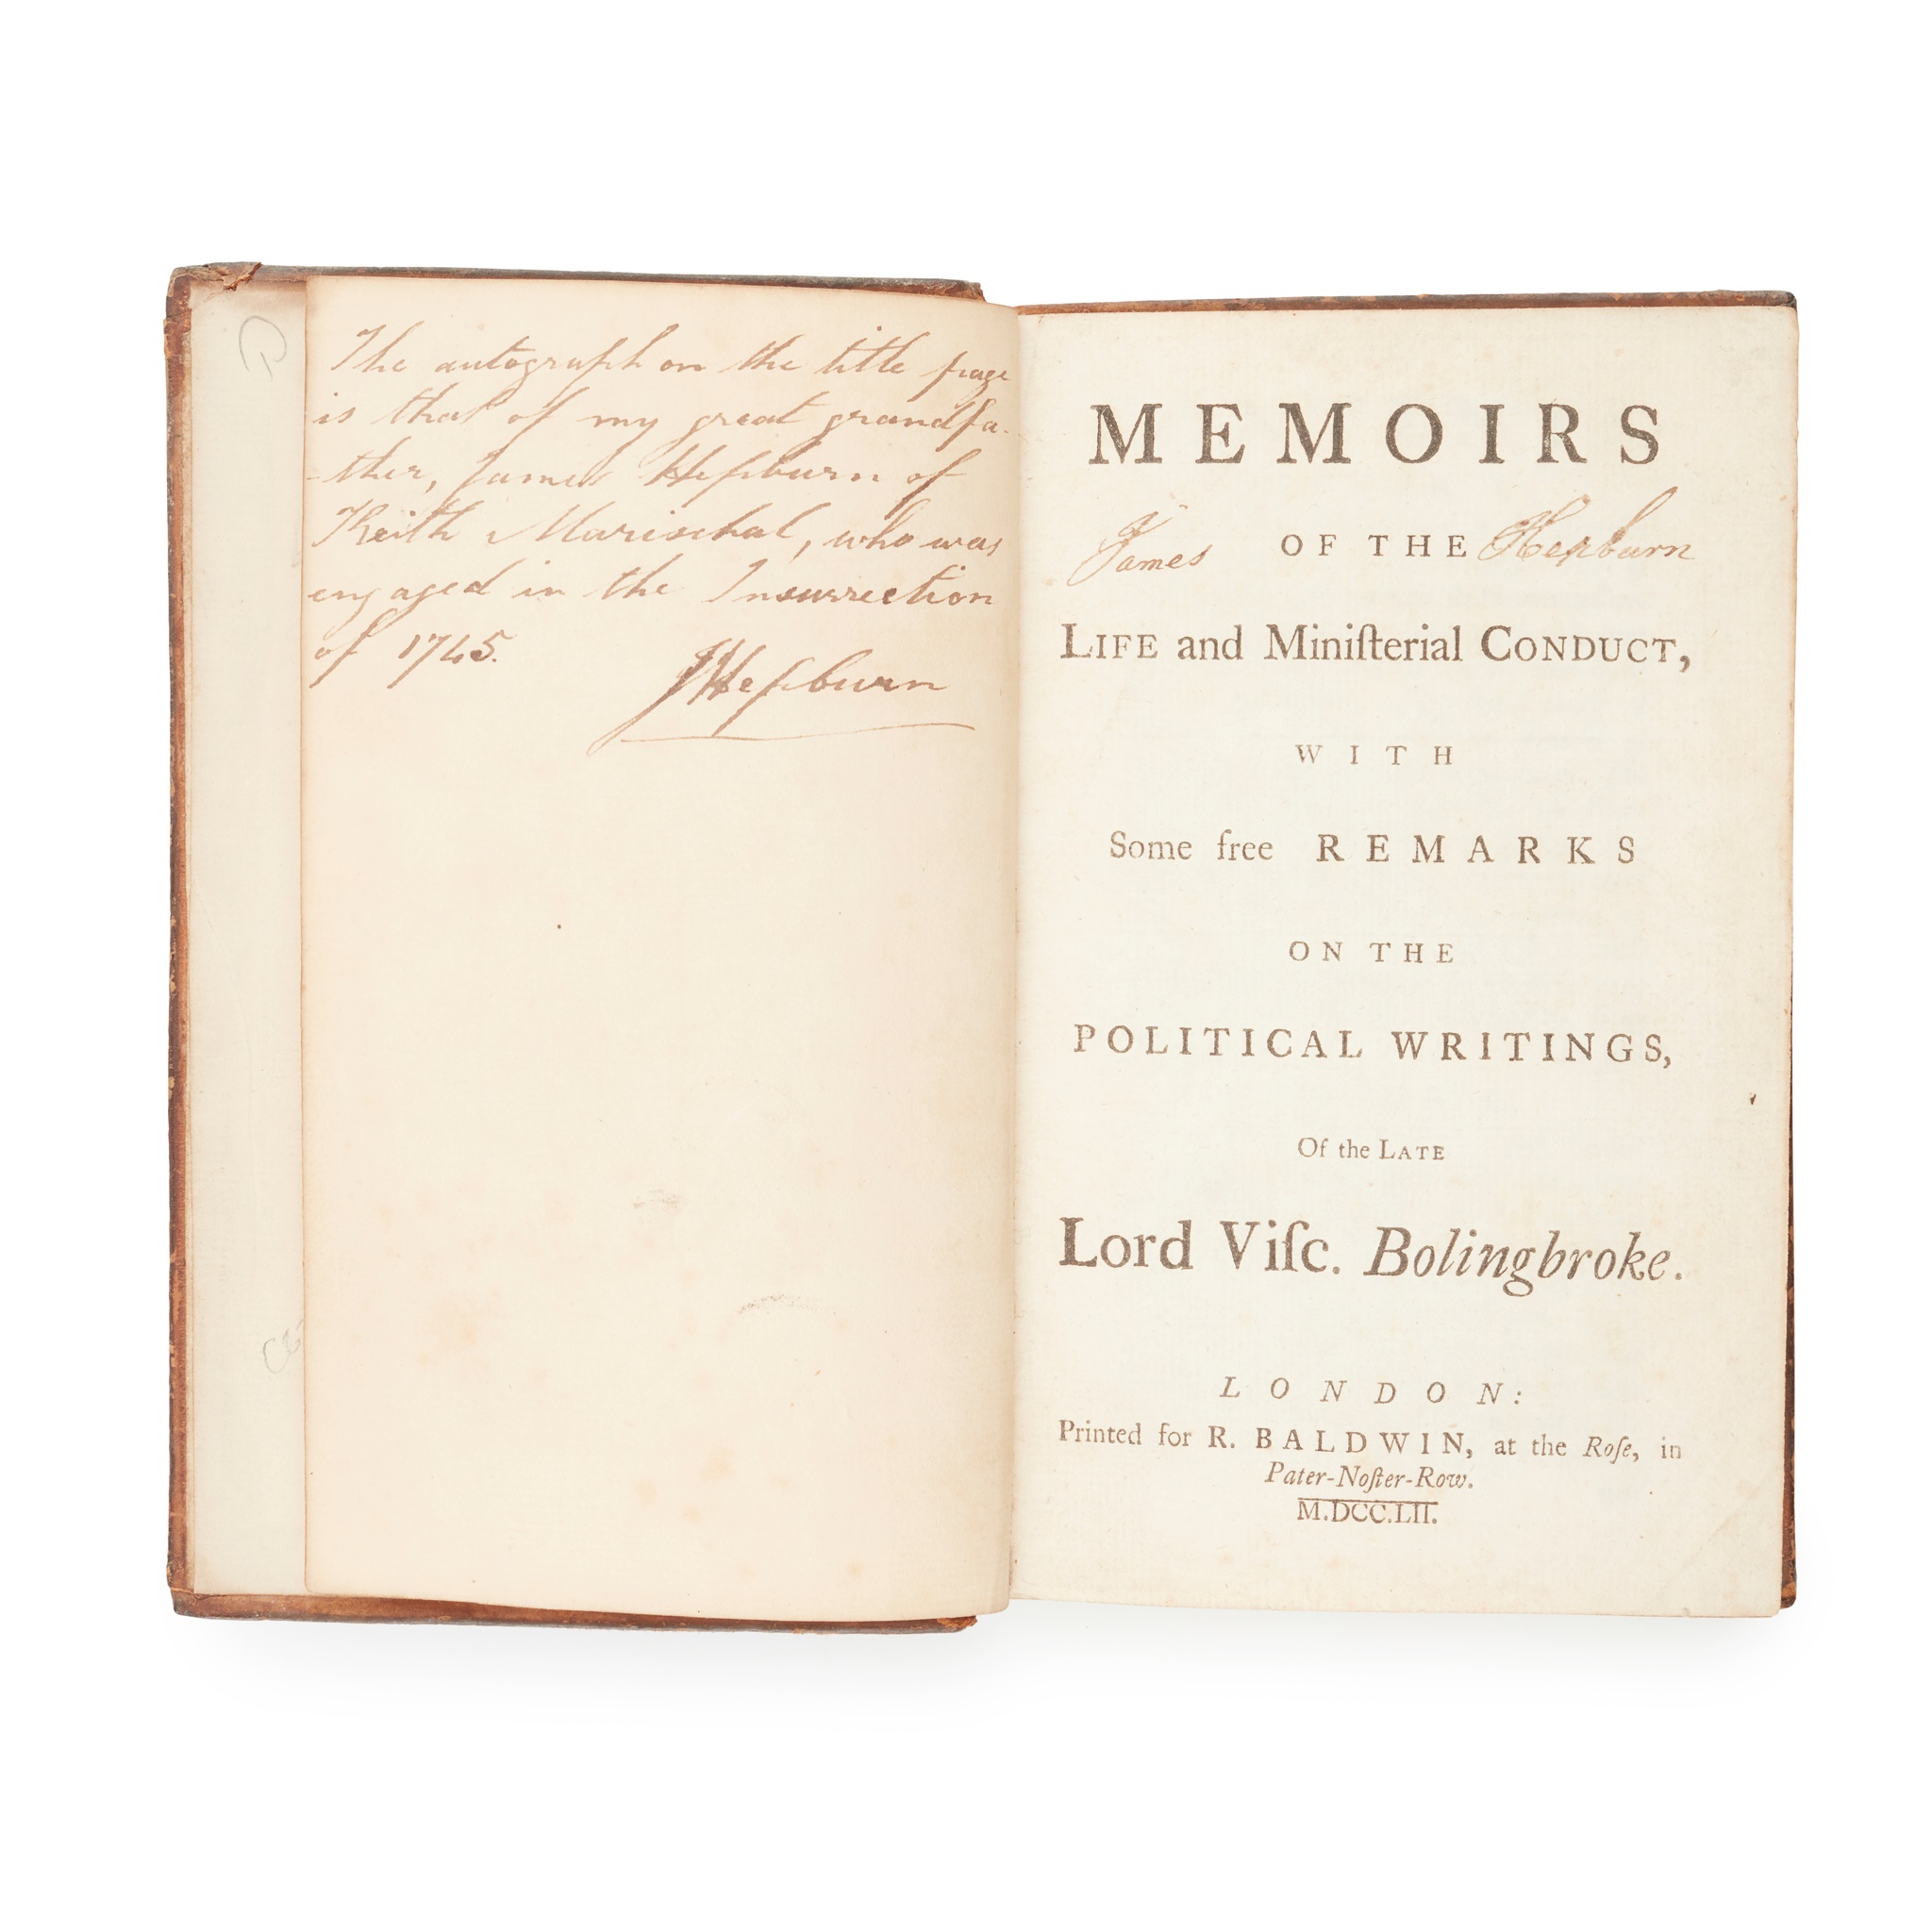 The autograph on the title page
is that of my great grandfa-
-ther, James Hepburn of
Keith Marischal, who was
engaged in the Insurrection
of 1745.
JHepburn
MEMOIRS
James OF THE Hepburn
LIFE and Miniſterial CONDUCT,
WITH
Some free REMARKS
ON THE
POLITICAL WRITINGS,
Of the LATE
Lord Viſc. Bolingbroke.
LONDON:
Printed for R. BALDWIN, at the Roſe, in
Pater-Noſter-Row.
M.DCC.LII.